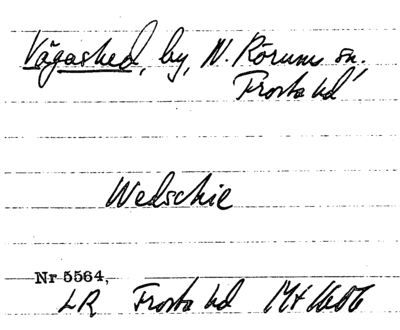 Vågashed, by, N. Rörums sn,
Frosta hd
Wedschie
Nr 5564,
LR Frosta hd Mt 1606